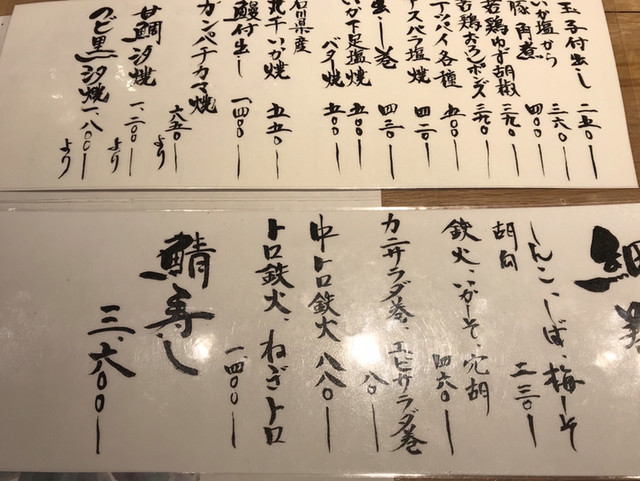 玉子付出し 二五〇
いか塩から 三六〇
豚角煮 四〇〇
若鶏ゆず胡椒 三九〇
若鶏おろしポンズ 三九〇
イッパイ各種 五〇〇
アスパラ塩焼 四二〇
出し巻 四三〇
いか下足塩焼 五〇〇
バター焼 五〇〇
石川県産
北干いか焼 五五〇
鰻付出し 一、四〇〇
カンパチカマ焼 六五〇より
甘鯛汐焼 一、二〇〇より
のど黒汐焼 一、八〇〇より
細巻
しんこ、しば、梅しそ
胡瓜 二三〇
鉄火、いかしそ、穴胡 四六〇
カニサラダ巻、エビサラダ巻
中トロ鉄火 八八〇
トロ鉄火、ねぎトロ 一、四〇〇
鯖寿し 三、六〇〇